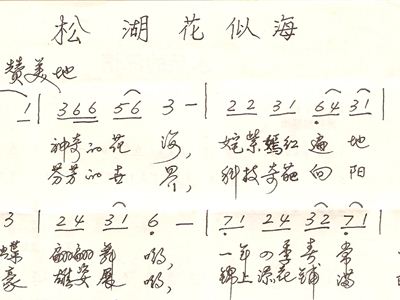 松湖花似海
赞美地
1 | 366 56 3 — | 22 31 64 31 |
神奇的花 海, 姹紫嫣红遍 地
芬芳的世 界, 科技奇葩向 阳
3 | 24 31 6 — | 71 24 32 71 |
蝶 翩翩舞 哟, 一年四季春 常
豪 雄姿展 哟, 锦上添花铺 满